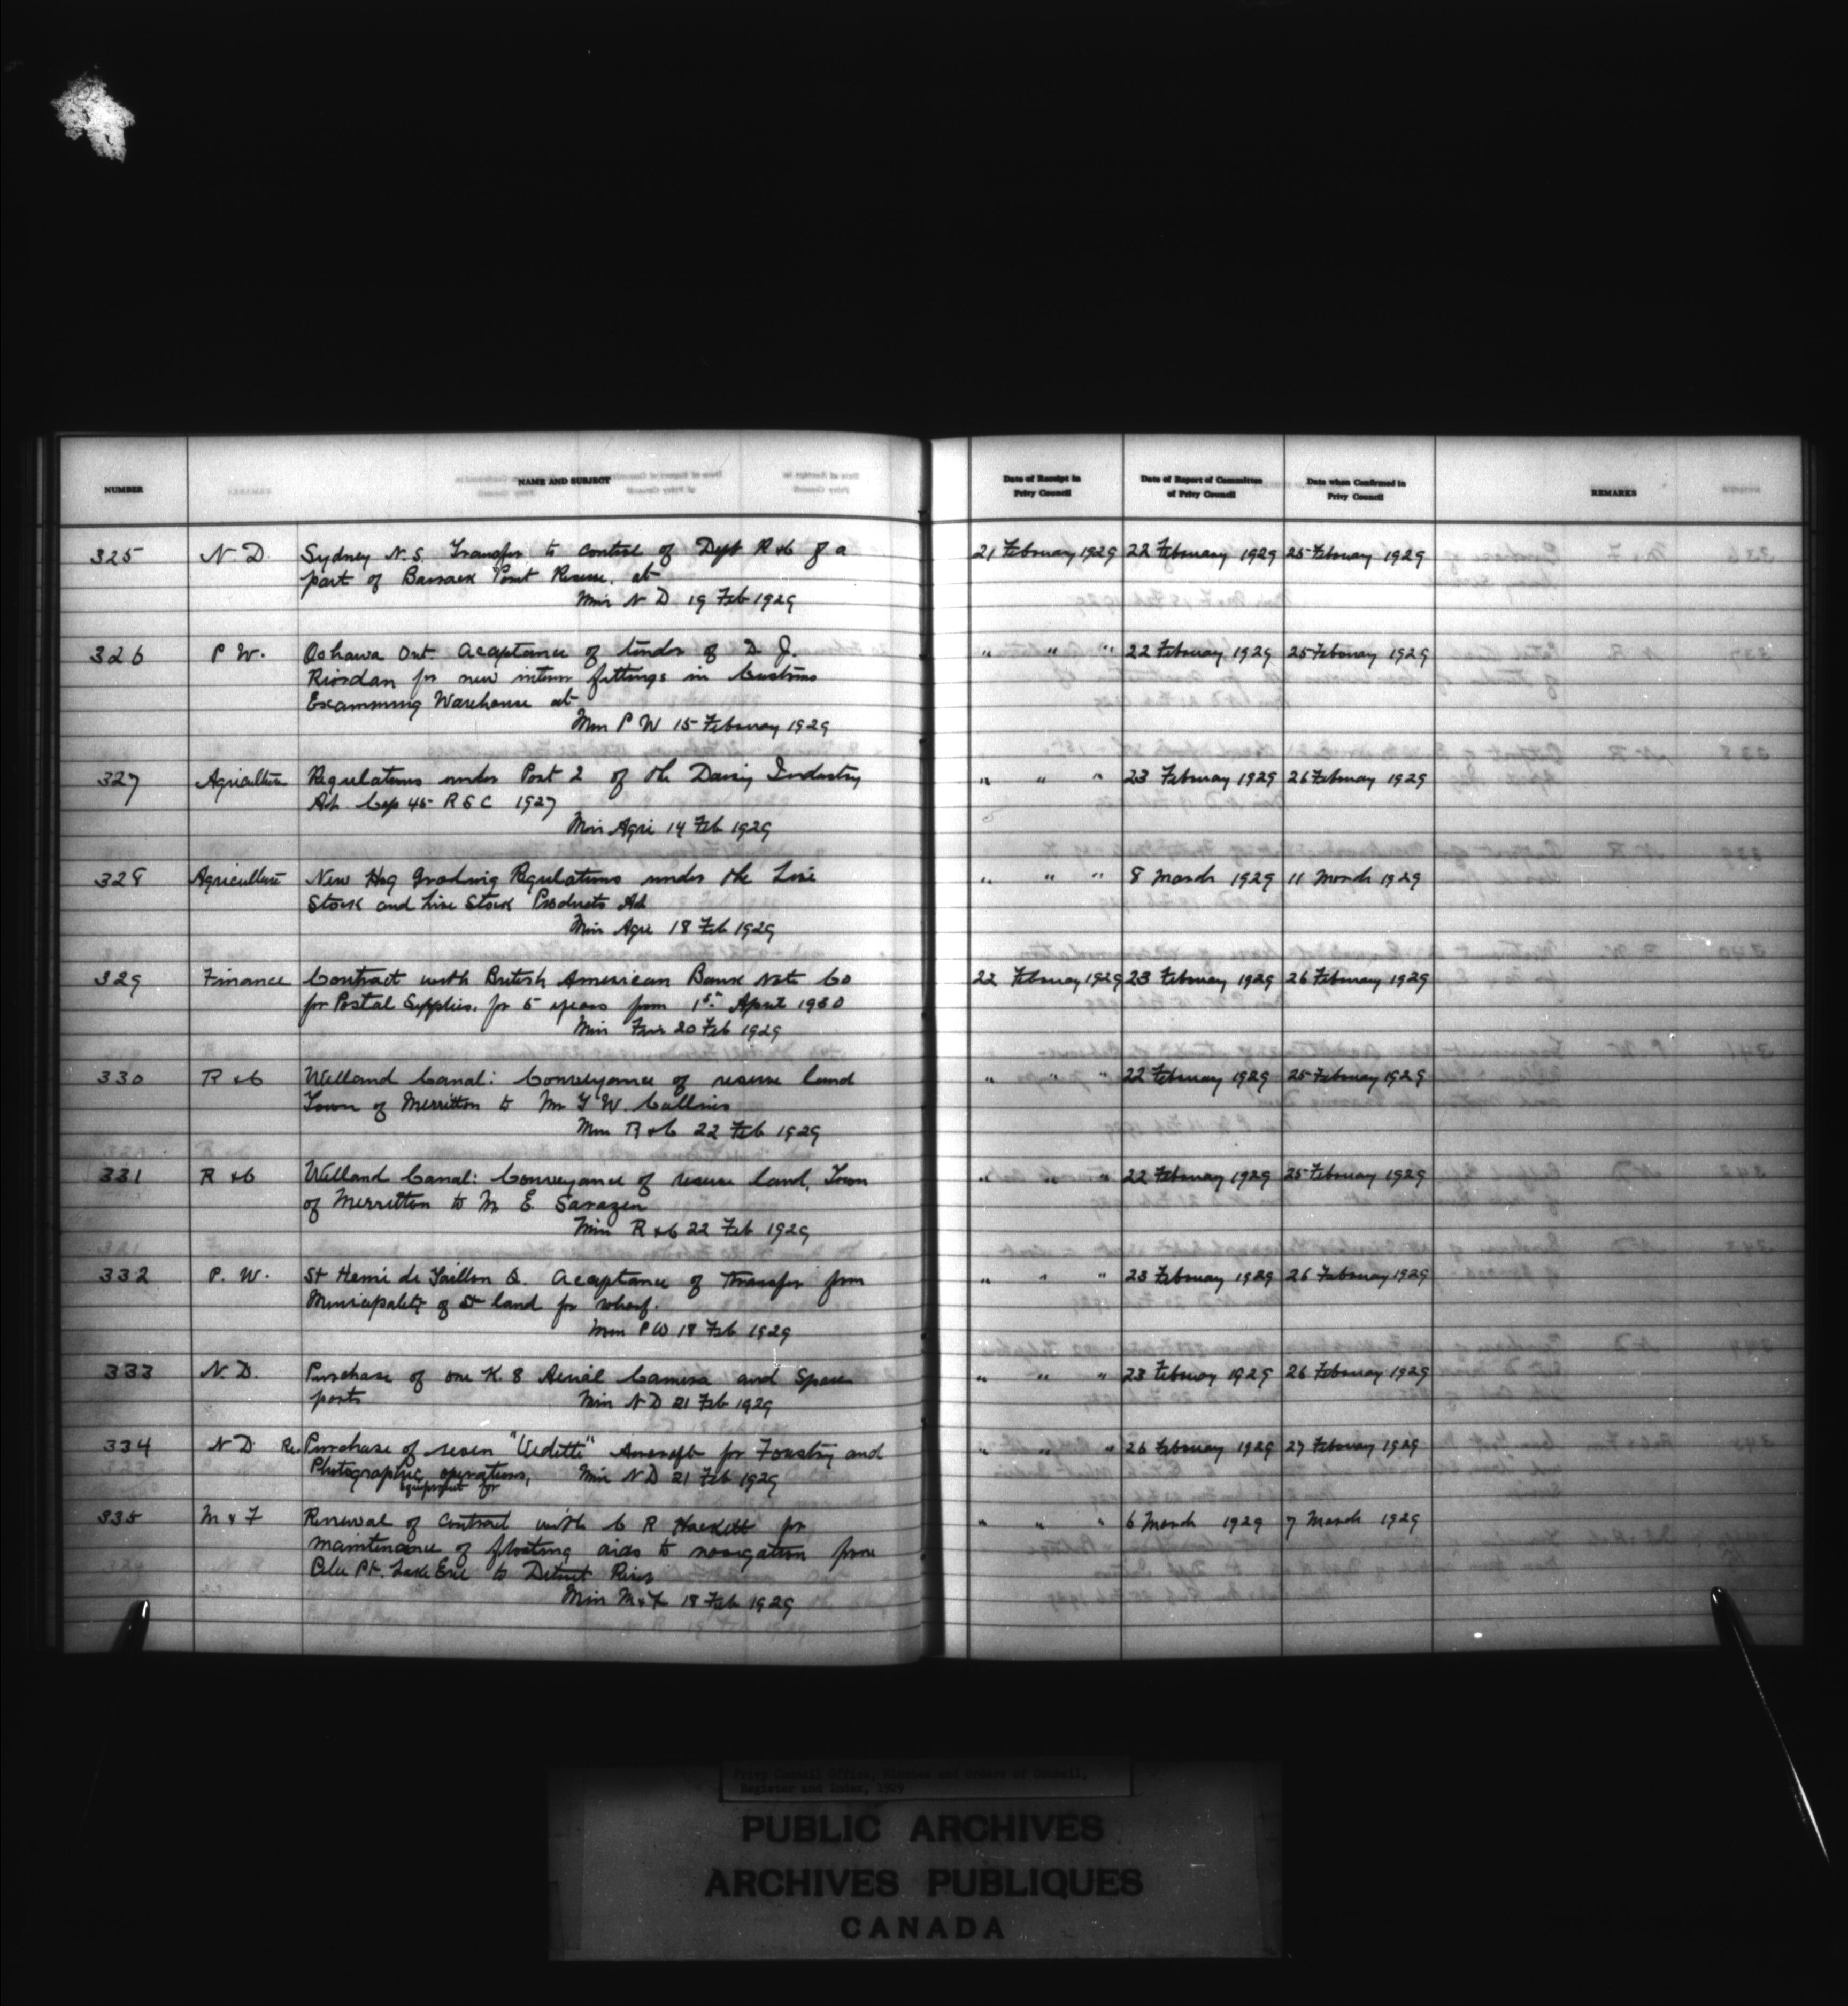 NUMBER
NAME AND SUBJECT
Date of Receipt in Privy Council
Date of Report of Committee of Privy Council
Date when Confirmed in Privy Council
REMARKS
325 N. D. Sydney N.S. Transfer to control of Dept R & C of a 21 February 1929 22 February 1929 25 February 1929
part of Barrack Point Reserve. at
Min N D 19 Feb 1929
326 P W. Oshawa Ont. Acceptance of tender of D. J. " " " 22 February 1929 25 February 1929
Riordan for new interior fittings in Customs
Examining Warehouse at
Min P W 15 February 1929
327 Agriculture Regulations under Part 2 of the Dairy Industry " " " 23 February 1929 26 February 1929
Act Cap 45 R S C 1927
Min Agri 14 Feb 1929
328 Agriculture New Hog Grading Regulations under the Live " " " 8 March 1929 11 March 1929
Stock and Live Stock Products Act
Min Agri 18 Feb 1929
329 Finance Contract with British American Bank Note Co 22 February 1929 23 February 1929 26 February 1929
for Postal Supplies. for 5 years from 1st April 1930
Min Fin 20 Feb 1929
330 R & C Welland Canal: Conveyance of reserve land " " " 22 February 1929 25 February 1929
Town of Merritton to Mr G W. Collins
Min R & C 22 Feb 1929
331 R & C Welland Canal: Conveyance of reserve land, Town " " " 22 February 1929 25 February 1929
of Merritton to Mr E Sarazen
Min R & C 22 Feb 1929
332 P. W. St Henri de Taillon Q. Acceptance of Transfer from " " " 23 February 1929 26 February 1929
Municipality of St land for wharf.
Min P W 18 Feb 1929
333 N. D. Purchase of one K. 8 Aerial Camera and Spare " " " 23 February 1929 26 February 1929
parts Min N D 21 Feb 1929
334 N D Re. Purchase of seven "Vedette" Aircraft for Forestry and " " " 26 February 1929 27 February 1929
Photographic operations, Min N D 21 Feb 1929
equipment for
335 M & F Renewal of contract with C R Hackett for " " " 6 March 1929 7 March 1929
maintenance of floating aids to navigation from
Pelee Pt. Lake Erie to Detroit River
Min M & F 18 Feb 1929
Privy Council Office, Minutes and Orders of Council,
Register and Index, 1929
PUBLIC ARCHIVES
ARCHIVES PUBLIQUES
CANADA